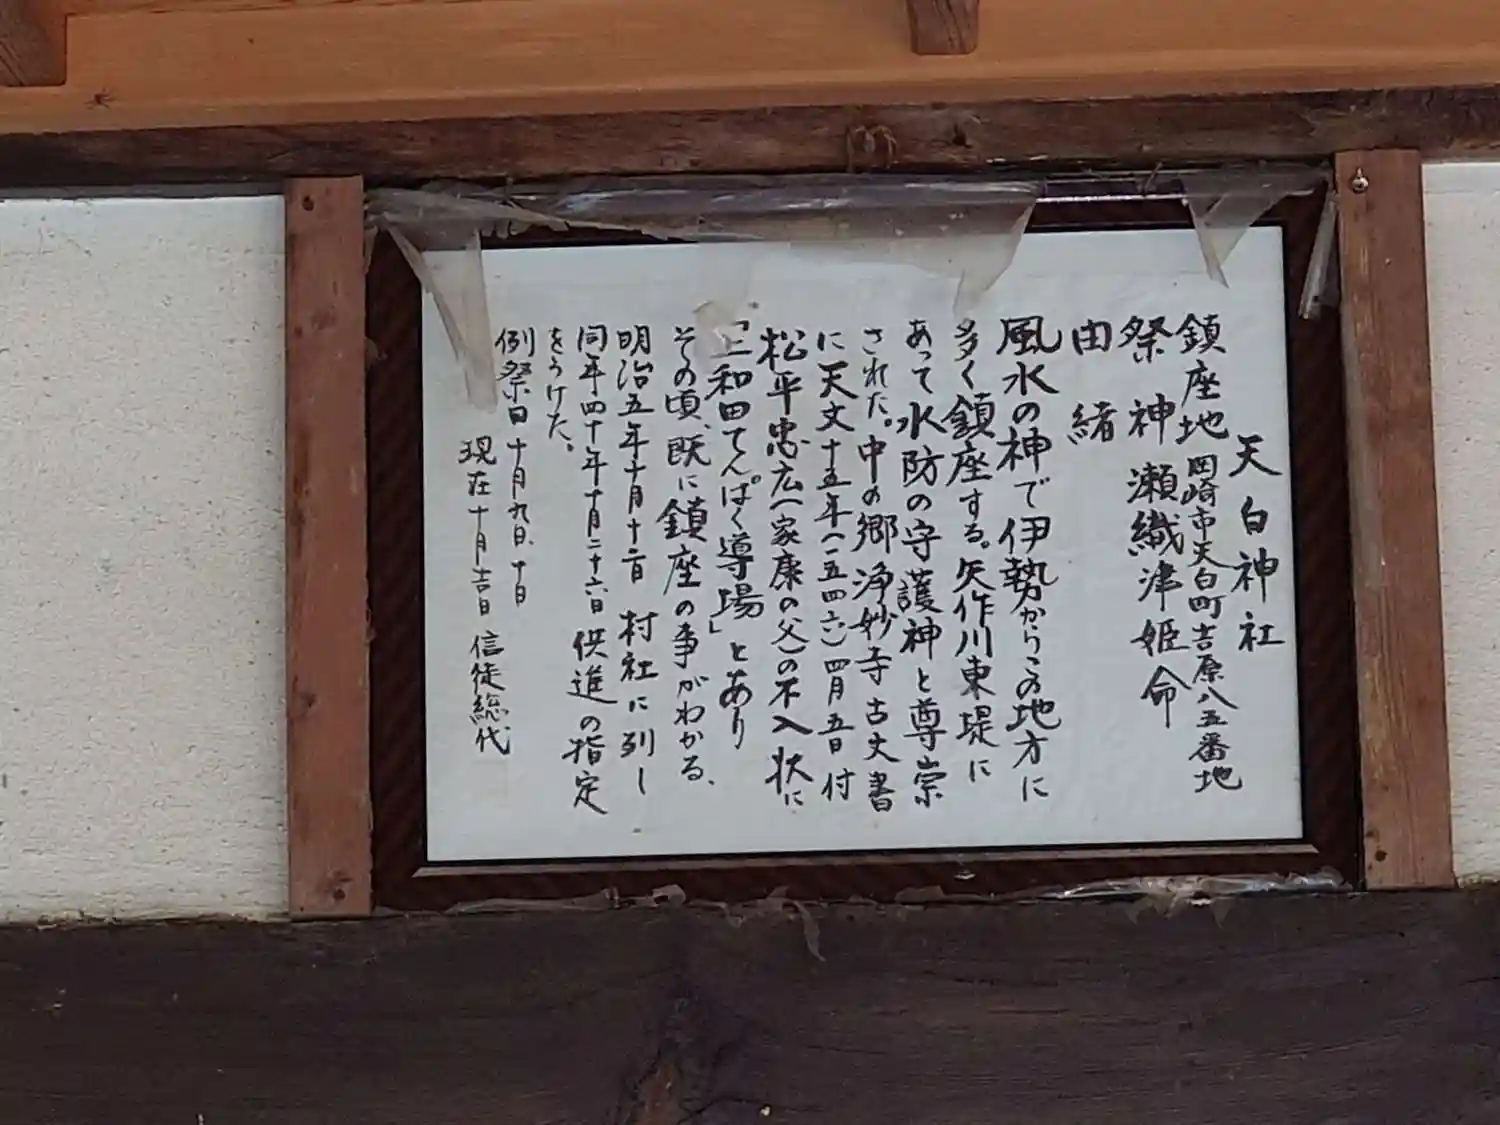 天白神社
鎮座地 岡崎市天白町吉原八五番地
祭神 瀬織津姫命
由緒
風水の神で伊勢からこの地方に
多く鎮座する。矢作川東堤に
あって水防の守護神と尊崇
された。中の郷浄妙寺古文書
に天文十五年(一五四六)四月五日付
松平忠広(家康の父)の不入状に
「三和田てんぱく導場」とあり
その頃、既に鎮座の事がわかる、
明治五年十月十二日 村社に列し
同年四十年十月二十六日 供進の指定
をうけた。
例祭日 十月九日、十日
現在 十月吉日 信徒総代